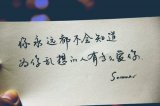 你永远都不会知道
为你乱想的人有多爱你
Summer